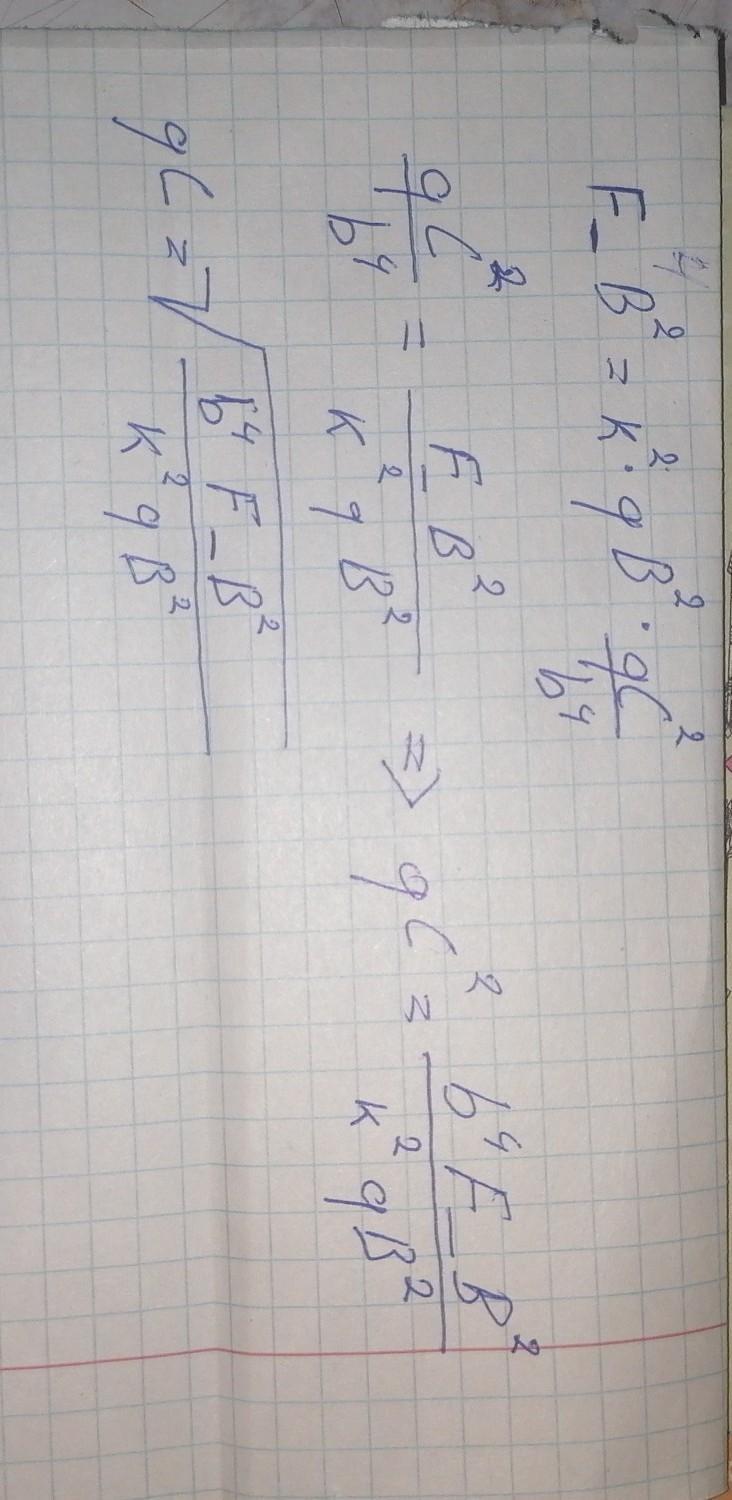 F_B² = k²·qB²·qC²/b⁴
qC²/b⁴ = F_B²/k²qB² => qC² = b⁴F_B²/k²qB²
qC = √b⁴F_B²/k²qB²